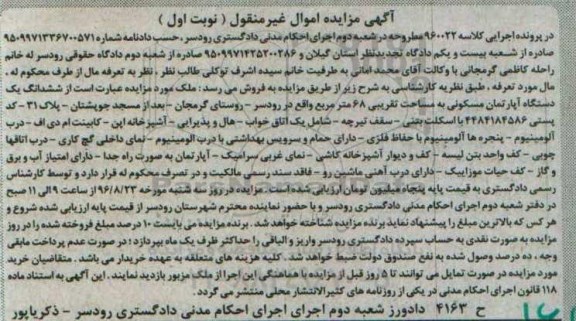 آگهی مزایده اموال غیرمنقول ( نوبت اول )
در پرونده اجرایی کلاسه ۹۶۰۰۲۲ مطروحه در شعبه دوم اجرای احکام مدنی دادگستری رودسر، حسب دادنامه شماره ۹۵۰۹۹۷۱۳۳۶۷۰۰۵۷۱
صادره از شعبه بیست و یکم دادگاه تجدیدنظر استان گیلان و ۹۵۰۹۹۷۱۴۲۵۲۰۰۲۸۶ صادره از شعبه دوم دادگاه حقوقی رودسر له خانم
راحله کاظمی گرمجانی با وکالت آقای محمد امانی به طرفیت خانم سیده اشرف توکلی طالب نظر ، نظر به تعرفه مال از طرف محکوم له ،
مال مورد تعرفه ، طبق نظریه کارشناسی به شرح زیر از طریق مزایده به فروش می رسد : ملک مورد مزایده عبارت است از ششدانگ یک
دستگاه آپارتمان مسکونی به مساحت تقریبی ۶۸ متر مربع واقع در رودسر - روستای گرمجان - بعد از مسجد جویشتان - پلاک ۳۱ - کد
پستی ۴۴۸۴۱۸۴۵۸۶ با اسکلت بتنی - سقف تیرچه - شامل یک اتاق خواب - هال و پذیرایی - آشپزخانه اپن - کابینت ام دی اف - درب
آلومینیوم - پنجره ها آلومینیوم با حفاظ فلزی - دارای حمام و سرویس بهداشتی با درب آلومینیوم - نمای داخلی گچ کاری - درب اتاقها
چوبی - کف واحد بتن لیسه - کف و دیوار آشپزخانه کاشی - نمای غربی سرامیک - آپارتمان به صورت راه جدا - دارای امتیاز آب و برق
و گاز - کف حیات موزاییک - دارای درب آهنی ماشین رو - فاقد سند رسمی مالکیت و در تصرف محکوم له قرار دارد و توسط کارشناس
رسمی دادگستری به قیمت پایه پنجاه میلیون تومان ارزیابی شده است. مزایده در روز سه شنبه مورخه ۹۶/۸/۲۳ از ساعت ۹ الی ۱۱ صبح
در دفتر شعبه دوم اجرای احکام مدنی دادگستری رودسر و با حضور نماینده محترم شهرستان رودسر از قیمت پایه ارزیابی شده شروع و
هر کس که بالاترین مبلغ را پیشنهاد نماید برنده مزایده شناخته خواهد شد . برنده مزایده می بایست ۱۰ درصد مبلغ فروخته شده را در روز
مزایده به صورت نقدی به حساب سپرده دادگستری رودسر واریز و الباقی را حداکثر ظرف یک ماه بپردازد ؛ در صورت عدم پرداخت مابقی
وجه ، ده درصد وصول شده به نفع صندوق دولت ضبط خواهد شد . کلیه هزینه های متعلقه به عهده خریدار می باشد . متقاضیان خرید
مورد مزایده در صورت تمایل می توانند تا ۵ روز قبل از مزایده با هماهنگی این اجرا از ملک مزبور بازدید نمایند . این آگهی به استناد ماده
۱۱۸ قانون اجرای احکام مدنی در یکی از روزنامه های کثیرالانتشار محلی منتشر می گردد.
ح ۴۱۶۳ دادورز شعبه دوم اجرای اجرای احکام مدنی دادگستری رودسر - ذکریاپور